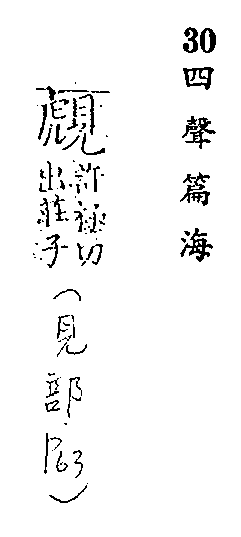 30四聲篇海
覤
許極切
出莊子
(見部P63)